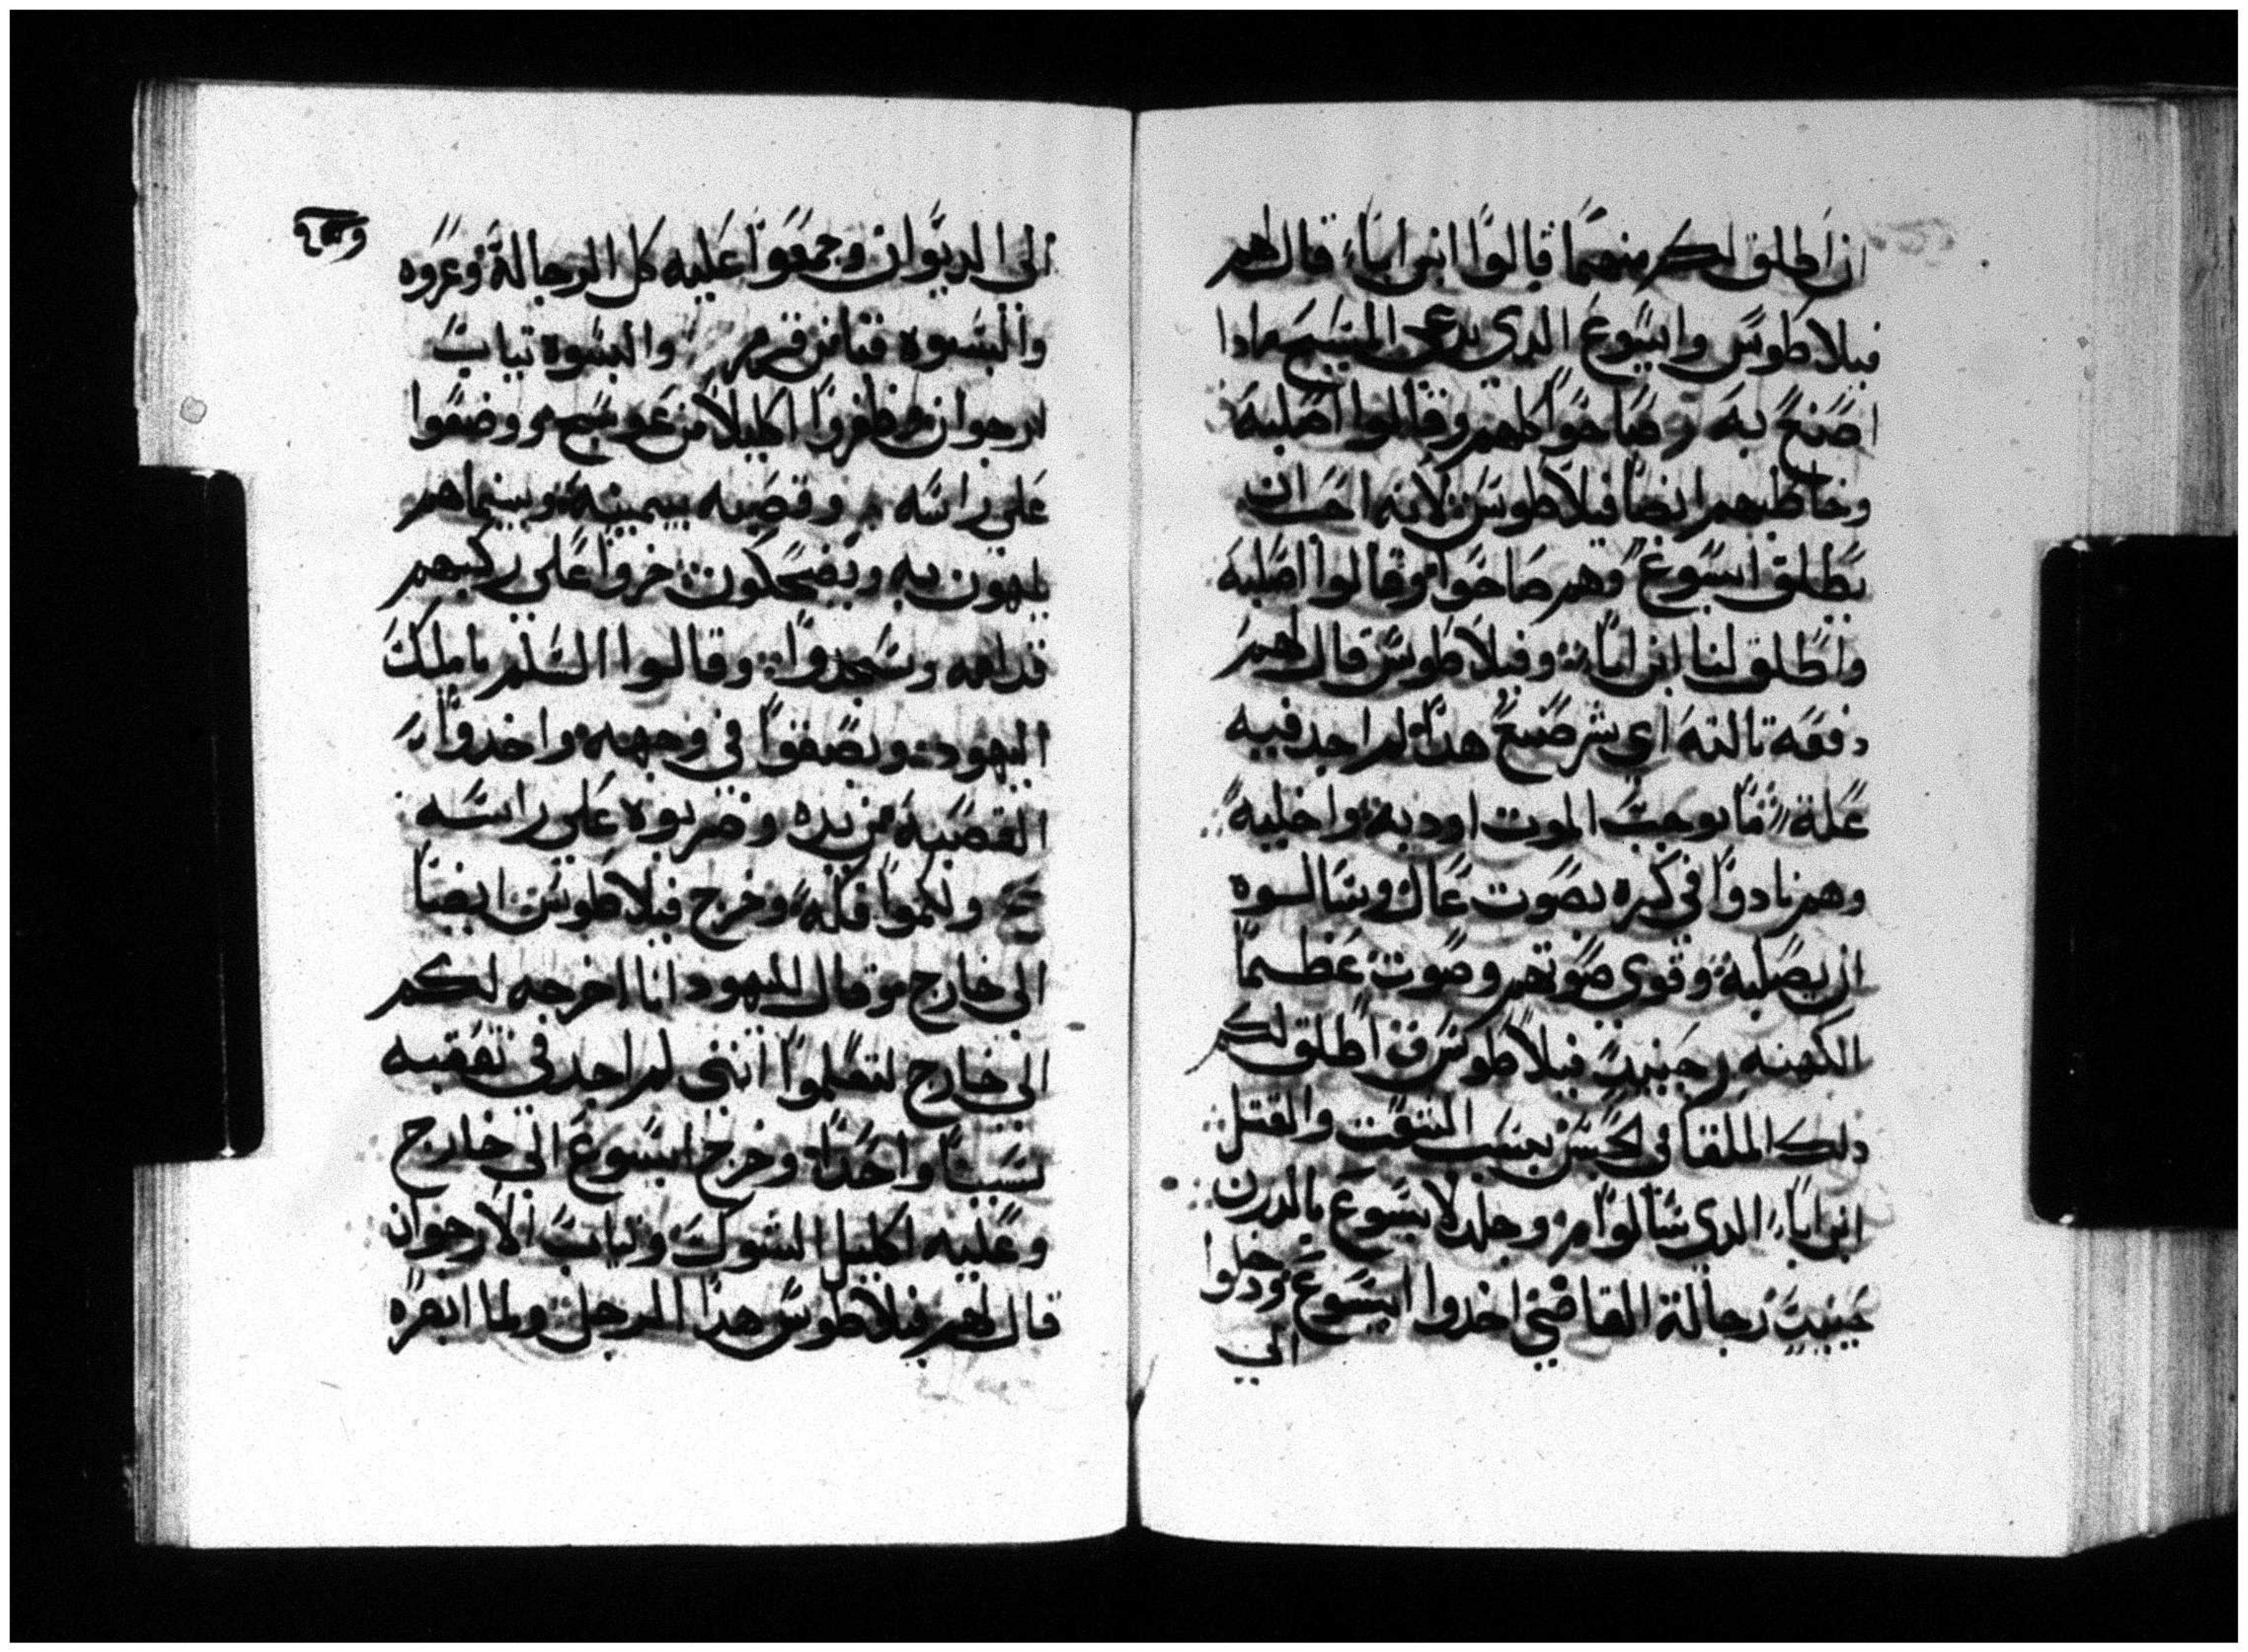 ان اطلق لكم منهما قالوا ابن ابا قال لهم
فيلاطوس وايسوع الدي يدعى المسيح مادا
اصنع به وصاحوا كلهم وقالوا اصلبه
وخاطبهم ايضا فيلاطوس لانه احب ان
يطلق ايسوع وهم صاحوا وقالوا اصلبه
واطلق لنا ابن ابا وفيلاطوس قال لهم
دفعه تالته اي شر صنع هدا لم اجد فيه
علة ما توجب الموت اوديه واخليه
وهم نادوا في كبره بصوت عال وسالوه
ان يصلبه وقوي صوتهم وصوت عظما
الكهنه حينيت فيلاطوس اطلق لكم
دلك الملقا في الحبس بسبب الشقت والقتل
ابن ابا الدي سالوا وجلد لايسوع بالدرن
حينيت رجالة القاضي اخدوا ايسوع ودخلوا
الي
الى الديوان وجمعوا عليه كل الرجالة وعروه
والبسوه قرمز والبسوه تياب
ارجوان وظفروا اكليلا من عوسج ووضعوا
على راسه وقصبه بيمينه وبينما هم
يلهون به ويضحكون خروا على ركبهم
قدامه وسجدوا وقالوا السلم يا ملك
اليهود وبصقوا في وجهه واخدوا
القصبه من يده وضربوه على راسه
ولكموا فكه وخرج فيلاطوس ايضا
الى خارج وقال لليهود انا اخرجه لكم
الى خارج لتعلموا انني لم اجد في تعقبه
سببا واحدا وخرج ايسوع الى خارج
وعليه اكليل الشوك وتياب الارجوان
قال لهم فيلاطوس هدا الرجل ولما ابصره